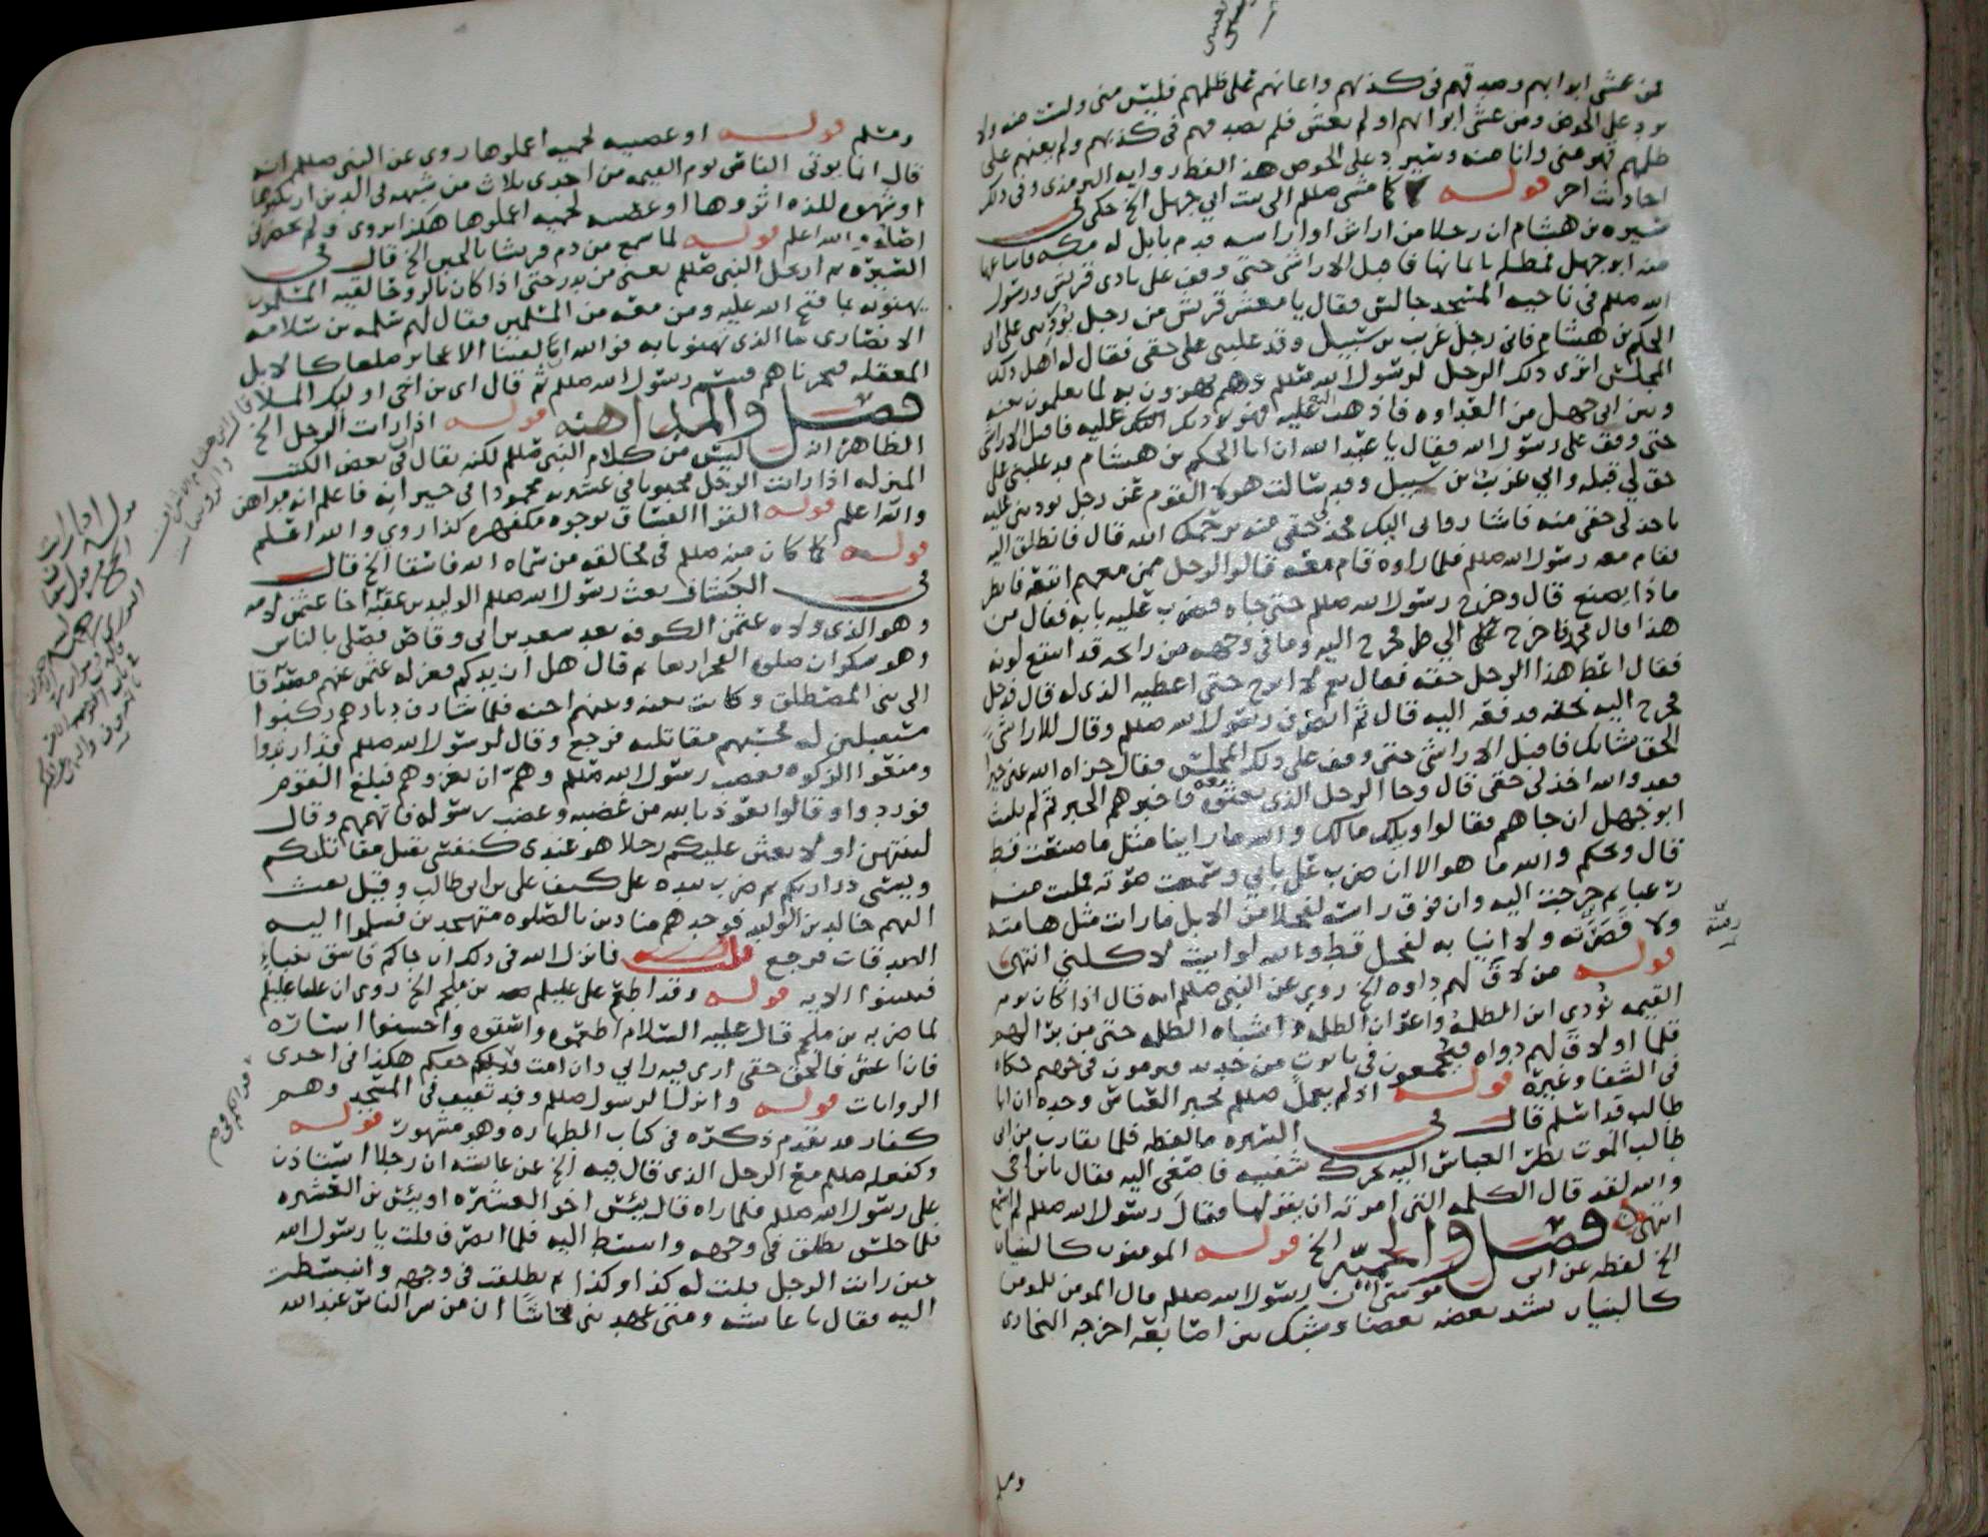 فمن غشي ابوابهم وصدقهم في كذبهم واعانهم على ظلمهم فليس مني ولست منه ولا
يرد علي الحوض ومن غشي ابوابهم او لم يغش فلم يصدقهم في كذبهم ولم يعنهم على
ظلمهم فهو مني وانا منه وسيرد على الحوض هذا لفظ رواية الترمذي وفي ذلك
احاديث اخر قوله كما مشى صللم الى بيت ابي جهل الخ حكى في
سيره بن هشام ان رجلا من اراش او اراسه قدم بابل له مكة فابتاعها
منه ابو جهل فمطله باثمانها فاقبل الاراشي حتى وقف على نادي قريش ورسول
الله صللم في ناحيه المسجد جالس فقال يا معشر قريش من رجل يوديني على ابي
الحكم بن هشام فاني رجل غريب بن سبيل وقد غلبني على حقي فقال له اهل ذلك
المجلس اترى ذلك الرجل لرسول الله صللم وهم يهزون به لما يعلمون بينه
وبين ابي جهل من العداوه فاذهب اليه فهو يوديك عليه فاقبل الاراشي
حتى وقف على رسول الله فقال يا عبد الله ان ابا الحكم بن هشام قد غلبني على
حق لي قبله واني غريب بن سبيل وقد سالت هولا القوم عن رجل يوديني عليه
ياخذ لي حقي منه فاشاروا لي اليك فخذ لي حقي منه يرحمك الله قال فانطلق اليه
فقام معه رسول الله صللم فلما راوه قام معه قالوا لرجل ممن معهم اتبعه فانظر
ماذا يصنع قال وخرج رسول الله صللم حتى جاه فضرب عليه بابه فقال من
هذا قال محمد فاخرج الي فخرج اليه وما في وجهه من رايحه قد انتقع لونه
فقال اعط هذا الرجل حقه فقال نعم لا تبرح حتى اعطيه الذي له قال فدخل
فخرج اليه بحقه فدفعه اليه قال ثم انصرف رسول الله صللم وقال للاراشي
الحق بشانك فاقبل الاراشي حتى وقف على ذلك المجلس فقال جزاه الله عني خيرا
فقد والله اخذ لي حقي قال وجا الرجل الذي بعثوه معه فاخبرهم الخبر ثم لم يلبث
ابو جهل ان جاهم فقالوا ويلك مالك والله ما راينا مثل ما صنعت قط
قال ويحكم والله ما هو الا ان ضرب علي بابي وسمعت صوته فملئت منه
رعبا ثم خرجت اليه وان فوق راسه لفحلا من الابل ما رايت مثل هامته
ولا قصرته ولا انيابه لفحل قط والله لو ابيت لاكلني انتهى
قوله من لاق لهم دواه الخ روي عن النبي صللم انه قال اذا كان يوم
القيمه نودي اين الظلمه واعوان الظلمه واشباه الظلمه حتى من برا لهم
قلما او لاق لهم دواه فيجمعون في تابوت من حديد فيرمون في جهنم حكاه
في الشفا وغيره قوله اذ لم يعمل صللم بخبر العباس وحده ان ابا
طالب قد اسلم قال في السيره ما لفظه فلما تقارب من ابي
طالب الموت نظر العباس اليه يحرك شفتيه فاصغى اليه فقال يا بن اخي
والله لقد قال الكلمه التي امرته ان يقولها فقال رسول الله صللم لم اسمع
انتهى فصل والمحبه الخ قوله المومنون كالبنيان
الخ لفظه عن ابي موسى ان رسول الله صللم قال المومن للمومن
كالبنيان يشد بعضه بعضا وشبك بين اصابعه اخرجه البخاري
رقبته
ومسلم
ومسلم قوله او عصبيه لحميه اعملوها روى عن النبي صللم انه
قال انما يوتى الناس يوم القيمه من احدى ثلاث من شبهه في الدين ارتكبوها
او شهوه للذه اثروها او عصبيه لحميه اعملوها هكذا روي ولم يحضرني
اصله والله اعلم قوله لما سمع من ذم قريشا بالجبن الخ قال في
السيره ثم ارتحل النبي صللم يعني من بدر حتى اذا كان بالروحا لقيه المسلمون
يهنونه بما فتح الله عليه ومن معه من المسلمين فقال لهم سلمه بن سلامه
الانصاري ما الذي تهنونا به فوالله ان لقينا الا عجايز صلعا كالابل
المعقله فنحرناها فتبسم رسول الله صللم ثم قال اي بن اخي اوليك الملا
فصل والمداهنه قوله اذا رايت الرجل الخ
الظاهر انه ليس من كلام النبي صللم لكنه يقال في بعض الكتب
المنزله اذا رايت الرجل محبوبا في عشيرته محمودا في جيرانه فاعلم انه مداهن
والله اعلم قوله القوا الفساق بوجوه مكفهره كذا روي والله اعلم
قوله كما كان منه صللم في مخالقه من سماه الله فاسقا الخ قال
في الكشاف بعث رسول الله صللم الوليد بن عقبه اخا عثمن لامه
وهو الذي ولاه عثمن الكوفه بعد سعد بن ابي وقاص فصلى بالناس
وهو سكران صلوه الفجر اربعا ثم قال هل ازيدكم فعزله عثمن عنهم مصدقا
الى بني المصطلق وكانت بينه وبينهم احنه فلما شارف ديارهم ركبوا
مستقبلين له فحسبهم مقاتليه فرجع وقال لرسول الله صللم قد ارتدوا
ومنعوا الزكوه فغضب رسول الله صللم وهم ان يغزوهم فبلغ القوم
فوردوا وقالوا نعوذ بالله من غضبه وغضب رسوله فاتهمهم وقال
لتنتهن او لابعثن عليكم رجلا هو عندي كنفسي يقتل مقاتلتكم
ويسبي ذراريكم ثم ضرب بيده على كتف علي بن ابي طالب وقيل بعث
اليهم خالد بن الوليد فوجدهم منادين بالصلوه متهجدين فسلموا اليه
الصدقات فرجع قلت فانزل الله في ذلك ان جاكم فاسق بنبا
فتبينوا الايه قوله وقد اطعم علي عليلم بن ملجم الخ روي ان عليا عليلم
لما ضربه بن ملجم قال عليه السلام اطعموه واسقوه واحسنوا اساره
فان اعش فالحق حقي ارى فيه رايي وان امت فحقكم هكذا في احدى
الروايات قوله وانزل الرسول صللم وفد ثقيف في المسجد وهم
كفار قد تقدم ذكره في كتاب الطهاره وهو مشهور قوله
وكفعله صللم مع الرجل الذي قال فيه الخ عن عايشه ان رجلا استاذن
على رسول الله صللم فلما راه قال بئس اخو العشيره او بيس بن العشيره
فلما جلس تطلق في وجهه وانبسط اليه فلما انصرف قلت يا رسول الله
حين رايت الرجل قلت له كذا وكذا ثم تطلقت في وجهه وانبسطت
اليه فقال يا عايشه ومتى عهدتني فحاشا ان من شر الناس عند الله